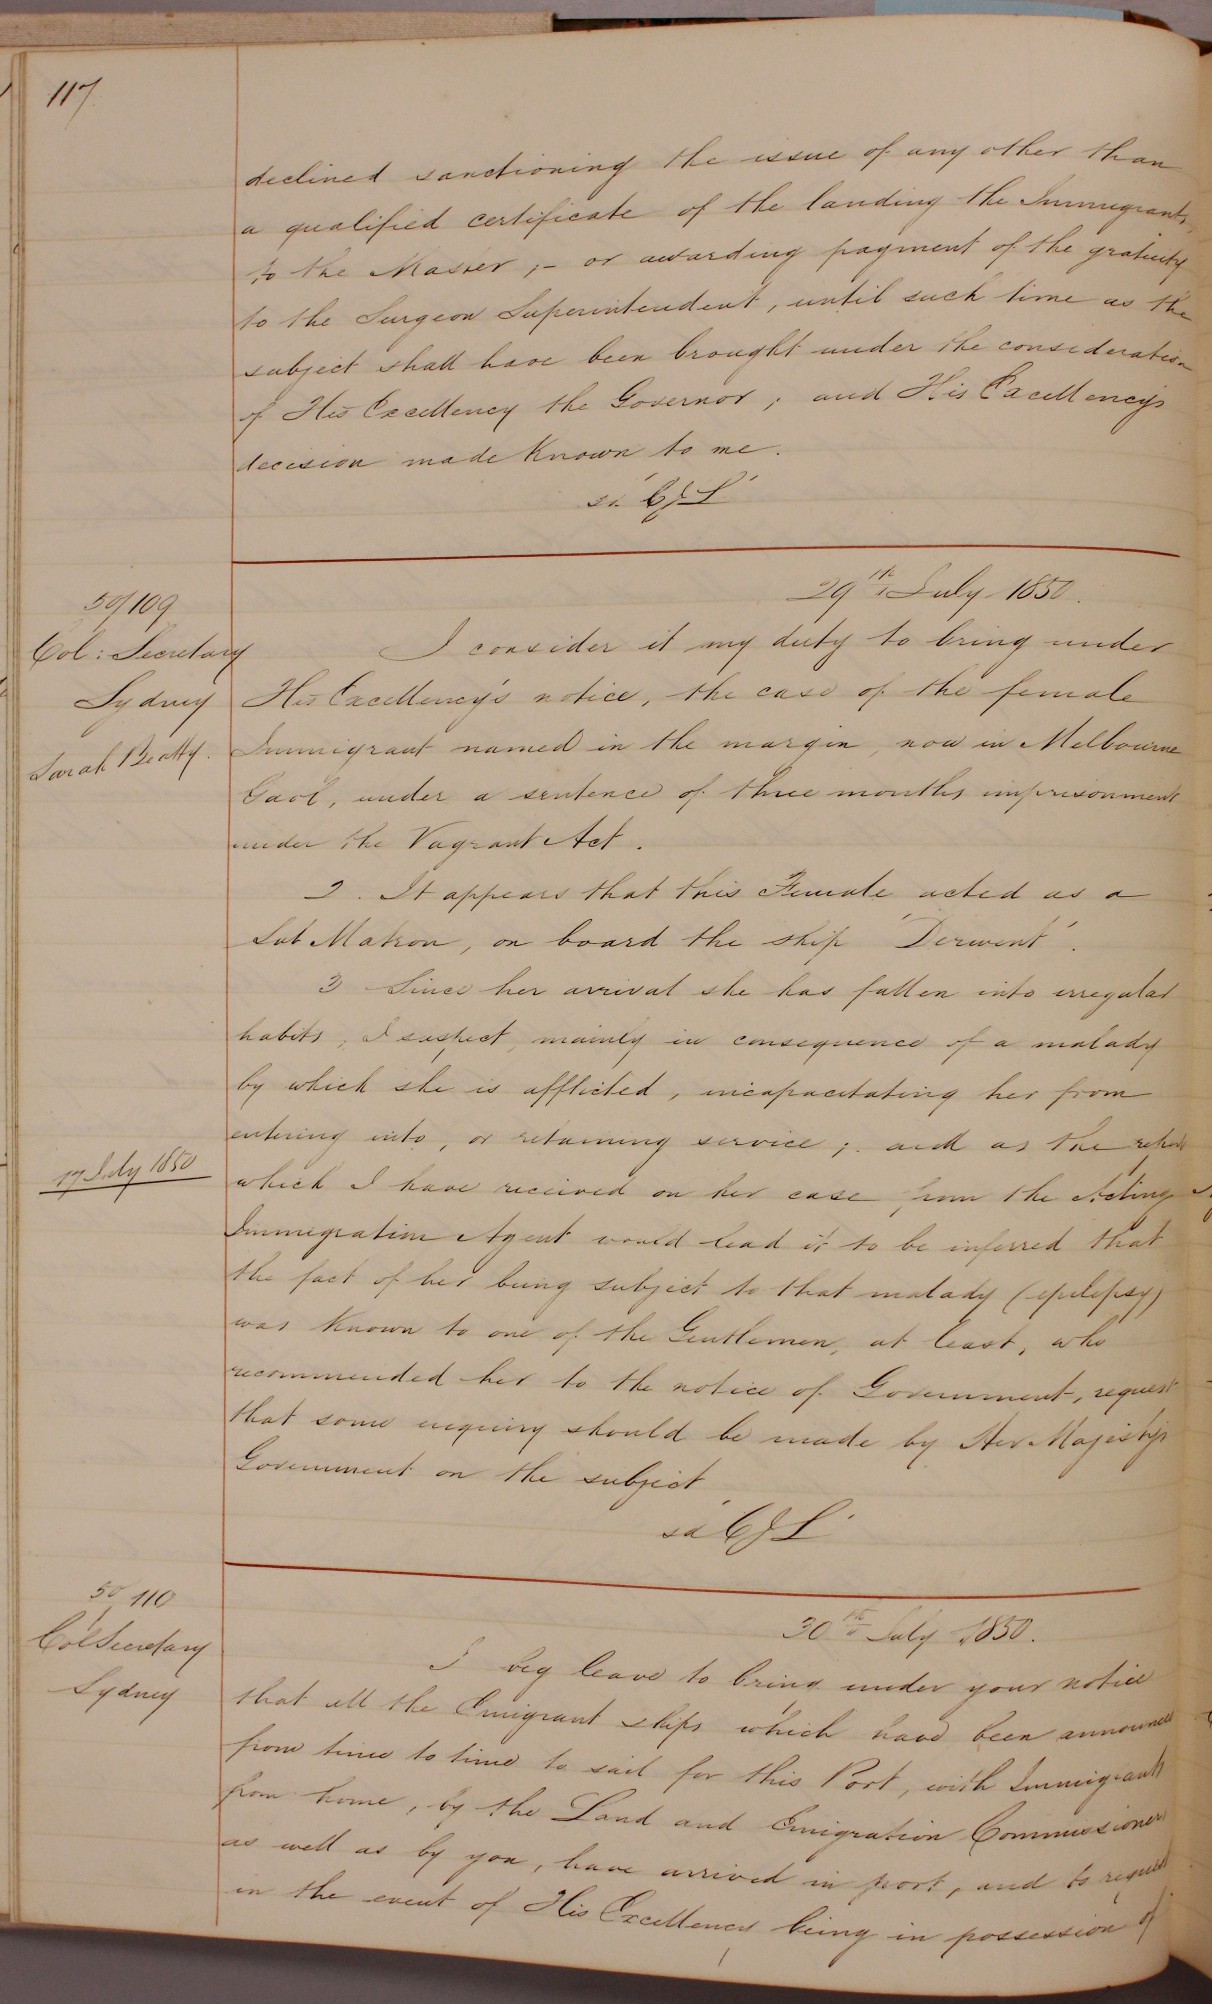 117
declined sanctioning the issue of any other than
a qualified certificate of the landing the Immigrants,
to the Master ;- or awarding payment of the gratuity
to the Surgeon Superintendent, until such time as the
subject shall have been brought under the consideration
of His Excellency the Governor ; and His Excellency's
decision made known to me.
sd. "CJL"
29th July 1850.
50/109
Col: Secretary
Sydney
Sarah Beatty.
I consider it my duty to bring under
His Excellency's notice, the case of the female
Immigrant named in the margin, now in Melbourne
Gaol, under a sentence of three months imprisonment
under the Vagrant Act.
2. It appears that this Female acted as a
Sub Matron, on board the ship "Derwent".
3 Since her arrival she has fallen into irregular
habits, I suspect, mainly in consequence of a malady
by which she is afflicted, incapacitating her from
entering into, or retaining service ; and as the report
17 July 1850
which I have received on her case, from the Acting
Immigration Agent would lead it to be inferred that
the fact of her being subject to that malady (epilepsy)
was known to one of the Gentlemen, at least, who
recommended her to the notice of Government, request
that some enquiry should be made by Her Majesty's
Government on the subject
sd "CJL"
30th July 1850.
50/110
Col Secretary
Sydney
I beg leave to bring under your notice
that all the Emigrant ships which have been announced
from time to time to sail for this Port, with Immigrants
from home, by the Land and Emigration Commissioners
as well as by you, have arrived in port, and to request
in the event of His Excellency being in possession of